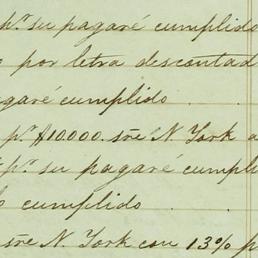 pr. su pagaré cumplido
por letra descontad
agaré cumplido
pr. $10.000 sre N. York a
pr. su pagaré cumpli
cumplido
sre N. York con 13% p